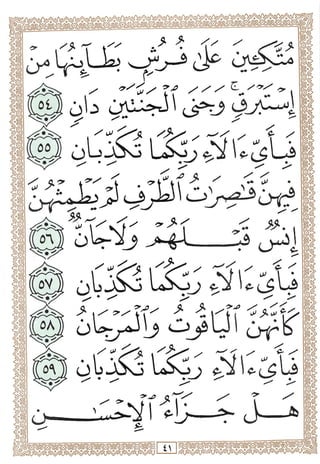 مُتَّكِـِٔينَ عَلَىٰ فُرُشٍۭ بَطَآئِنُهَا مِنْ
إِسْتَبْرَقٍۚ وَجَنَى ٱلْجَنَّتَيْنِ دَانٍ ٥٤
فَبِأَىِّ ءَالَآءِ رَبِّكُمَا تُكَذِّبَانِ ٥٥
فِيهِنَّ قَـٰصِرَٰتُ ٱلطَّرْفِ لَمْ يَطْمِثْهُنَّ
إِنسٌ قَبْلَهُمْ وَلَا جَآنٌّ ٥٦
فَبِأَىِّ ءَالَآءِ رَبِّكُمَا تُكَذِّبَانِ ٥٧
كَأَنَّهُنَّ ٱلْيَاقُوتُ وَٱلْمَرْجَانُ ٥٨
فَبِأَىِّ ءَالَآءِ رَبِّكُمَا تُكَذِّبَانِ ٥٩
هَلْ جَزَآءُ ٱلْإِحْسَـٰنِ
٤١